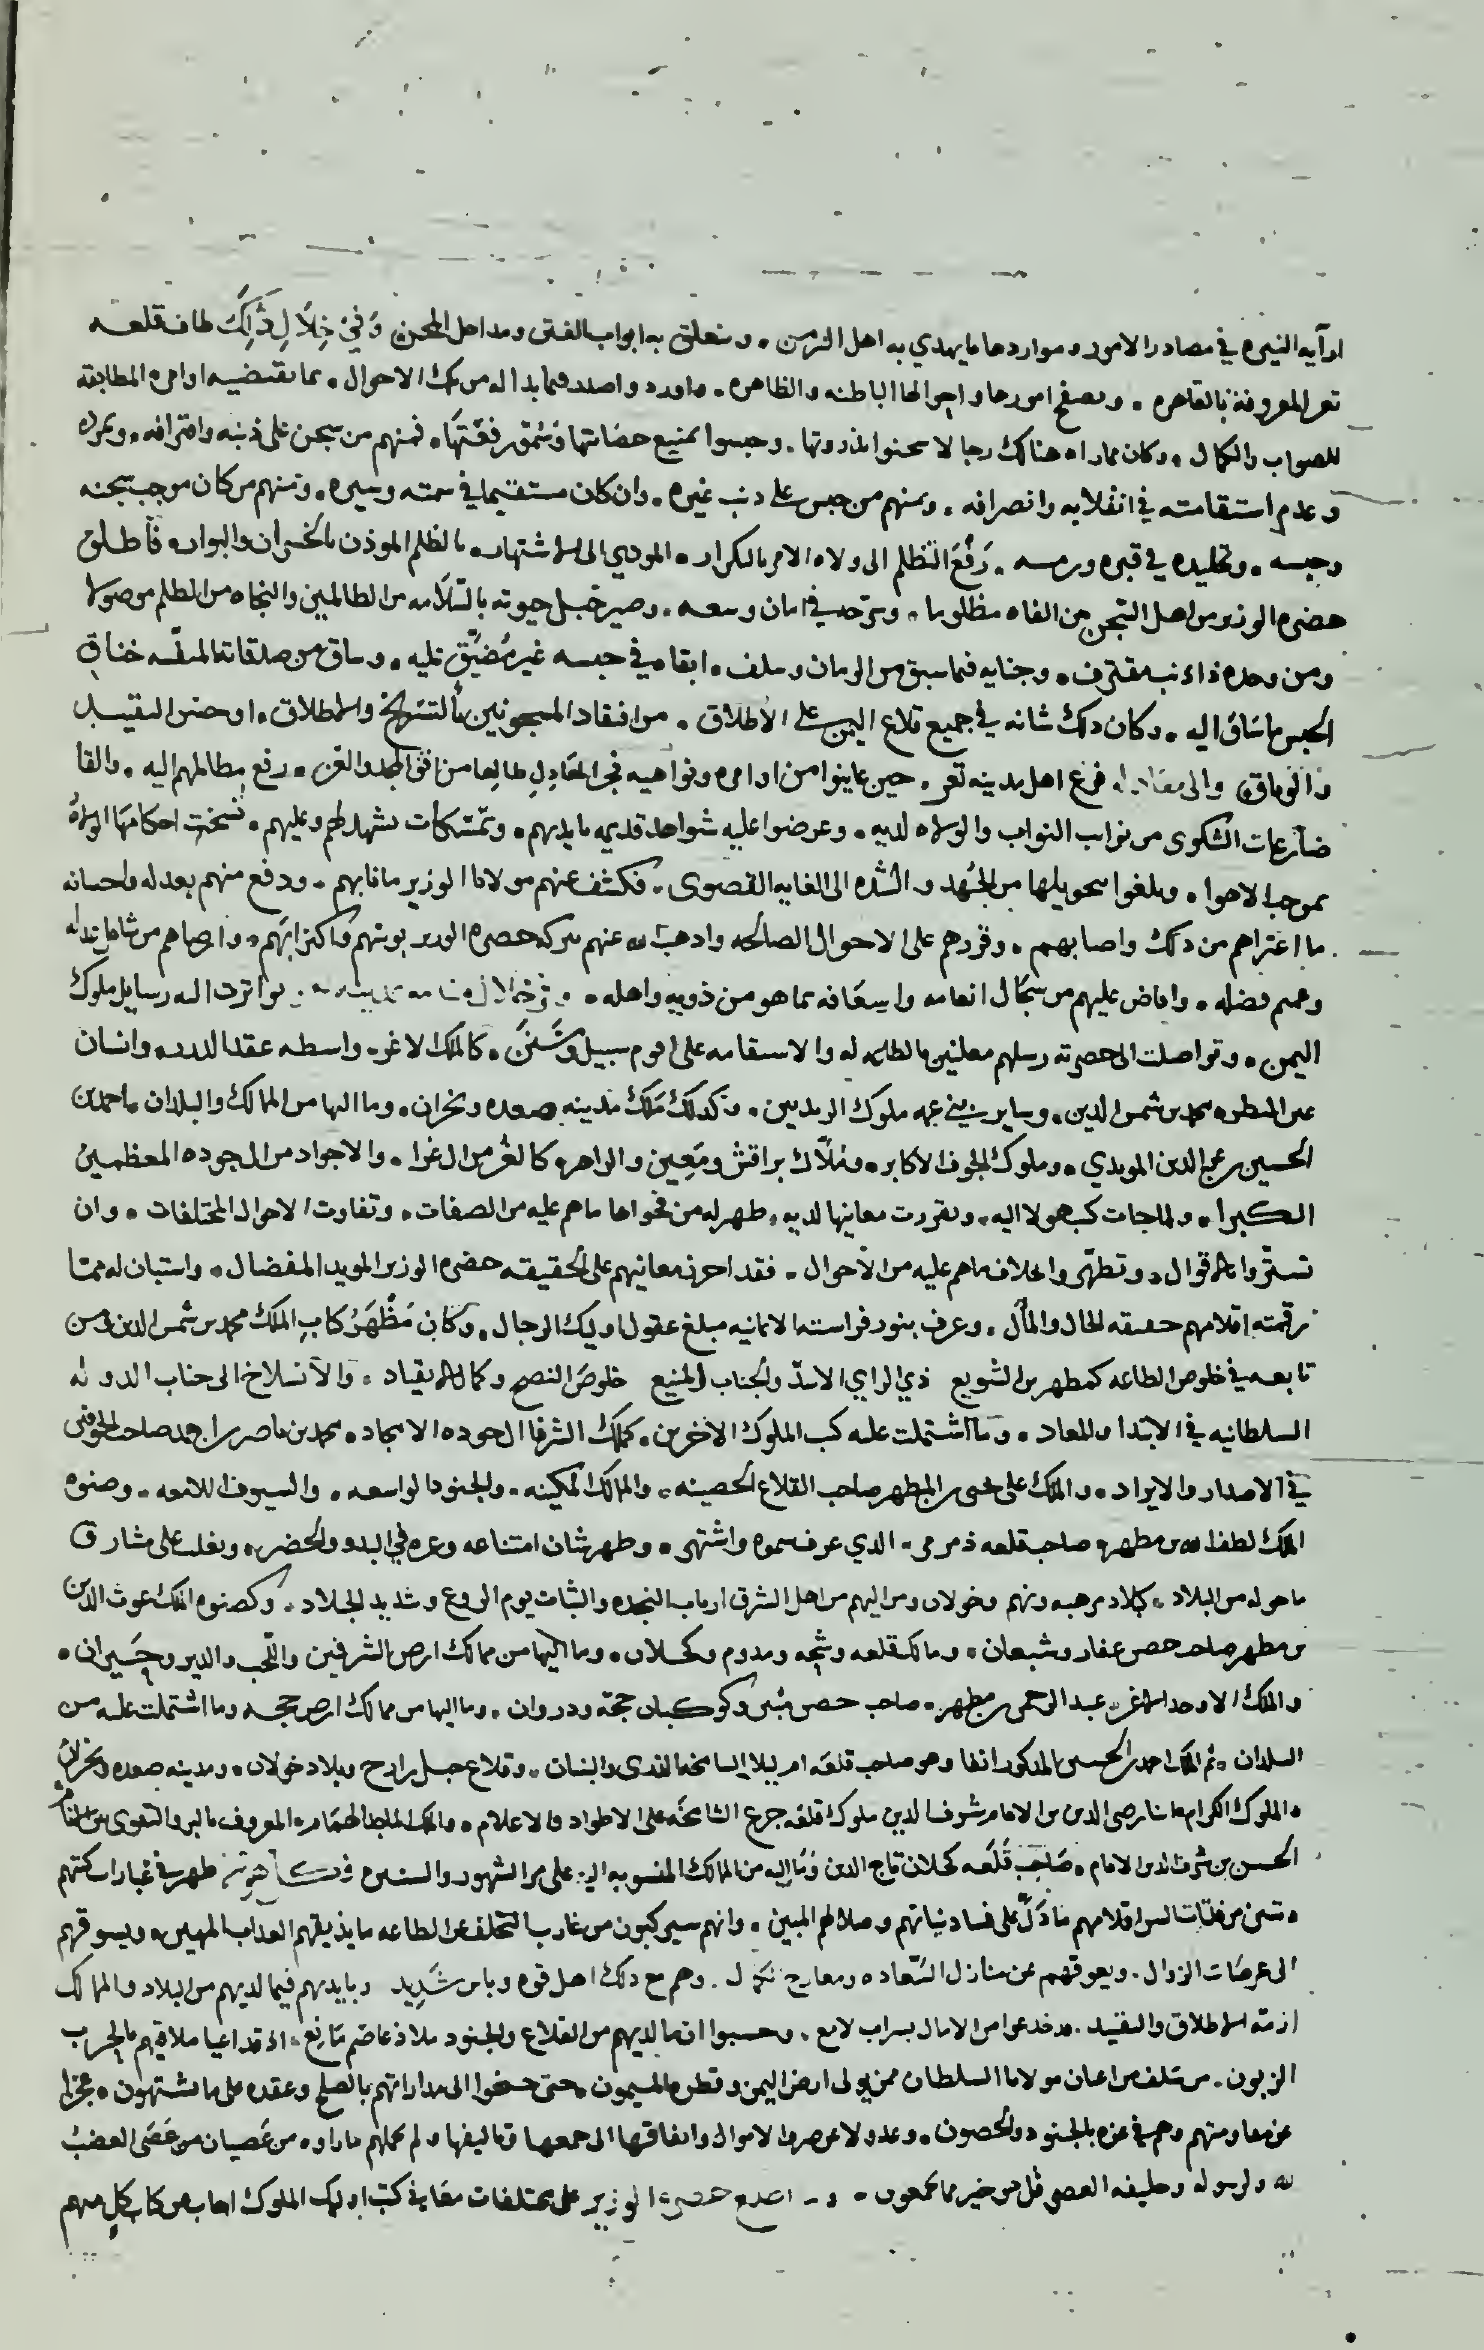 ارآيه النيره في مصادر الامور ومواردها ما يهدي به اهل الزمن . وتنغلق به ابواب الفتن ومداحل المحن وَفي خِلَالِ ذَلِكَ طاف قلعه
تعر المعروفة بالقاهره . وتصفح امورها واحوالها الباطنه والظاهره . واورد واصدر فيما بدا له من تلك الاحوال . بما تقتضيه اوامره المطابقة
للصواب والكمال . وكان مما راه هناك رجالا سجنوا بذروتها . وحبسوا بمنيع حضانتها وسمق رفعتها . فمنهم من سجن على ذنبه واقترافه . وتمرده
وعدم استقامته في انقلابه وانصرافه . ومنهم من حبس على ذنب غيره . وان كان مستقيما في سمته وسيره . ومنهم من كان موجب سجنه
وحبسه . وتخليده في قبره ورمسه . رَفْعَ التظلم الى ولاه الامر بالتكرار . المودي الى الاشتهار . بالظلم الموذن بالخسران والبوار . فأطلق
حضرة الوزير من اهل السجن من الفاه مظلوما . وسرحه في امان وسعه . وصير حبل حيوته بالسلامه من الظالمين والنجاه من المظلم موصولا
ومن وجده ذا ذنب مقترف . وجنايه فيما سبق من الزمان وسلف . ابقاه في حبسه غير مُضَيَّق عليه . وساق من صدقاته المنفسه خناق
الحبس ما ساق اليه . وكان ذلك شانه في جميع قلاع اليمن على الاطلاق . من افتقاد المسجونين بالتسريح والاطلاق . او حسن التقييد
والوثاق والى فزع اهل مدينه تعر . حين عاينوا من اوامره ونواهيه فجر المعَادِلِ طالعا من افق المجد والعز . رفع مظالمهم اليه . والقا
ضارعات الشكوى من نواب النواب والولاه لديه . وعرضوا عليه شواهد قديمه بايديهم . وتمسكات تشهد لهم وعليهم . نسخت احكامها الولاهُ
بموجب الاهوا . وبلغوا بتحويلها من الجهد والشده الى الغايه القصوى . فكشف عنهم مولانا الوزير ما نابهم . ودفع عنهم بعدله واحسانه
ما اعتراهم من ذلك واصابهم . وقررهم على الاحوال الصالحه واذهب الله عنهم ببركه حضرة الوزير بوسهم واكترابهم . وارضاهم من شامل نداه
وعميم فضله . وافاض عليهم من سجال انعامه واسعافه بما هو من ذويه واهله . وفي خلال تواترت اليه رسايل ملوك
اليمن . وتواصلت الى حضرته رسلهم معلنين بالطاعه له والاستقامه على اقوم سبيل وسَنَن . كالملك الاغر . واسطه عقد الدرر . وانسان
عين المنظر . محمد بن شمس الدين . وساير بني عمه ملوك الزيديين . وكذلك ملك مدينه صعده ونجران . وما اليها من الممالك والبلدان . احمد بن
الحسين بن عز الدين المويدي . وملوك الجوف الاكابر . ومُلّاك براقش ومَعين والزاهر . كالغر من ال غرا . والاجواد من ال جوده المعظمين
الكبرا . ولما جات كتب هولا اليه . وتقررت معانيها لديه . ظهر له من فحواها ما هم عليه من الصفات . وتفاوت الاحوال المختلفات . وان
تستروا بالاقوال . وتظهروا بخلاف ما هم عليه من الاحوال . فقد احرز معانيهم على الحقيقه حضرة الوزير المويد المفضال . واستبان له مما
رقمته اقلامهم حقيقه الحال والمآل . وعرف بنور فراسته الايمانيه مبلغ عقول اوليك الرجال . وكان مَظْهَرُ كتاب الملك محمد بن شمس الدين ومن
تابعه في خلوص الطاعه كمطهر بن الشويع ذي الراي الاسدّ والجناب المنيع خلوصَ النصح وكمال الانقياد . والانسلاخ الى جناب الدوله
السلطانيه في الابتدا والمعاد . وما اشتملت عليه كتب الملوك الاخرين . كملك الشرفا ال جوده الامجاد . محمد بن ناصر بن احمد صاحب الجوف
في الاصدار والايراد . والملك على يحيى بن المطهر صاحب القلاع الحصينه . والممالك المكينه . والجنود الواسعه . والسيوف اللامعه . وصنوه
الملك لطف الله بن مطهر . صاحب قلعه ذمرمر . الذي عرف سموه واشتهر . وظهر شان امتناعه وعزه في البدو والحضر . وتغلب على مشارق
ما حوله من البلاد . كبلاد مرهبه ونهم وخولان ومن اليهم من اهل الشرق ارباب النجده والثبات يوم الروع وشديد الجلاد . وكصنوه الملك غوث الدين
بن مطهر صاحب حصن عفار وشبعان . ومالك قلعه وشحه ومدوم وكحلان . وما اليها من ممالك ارض الشرفين والتحب والدير وجَيران .
والملك الاوحد الاغر . عبد الرحمن بن مطهر . صاحب حصن مبين وكوكبان حجة ودروان . وما اليها من ممالك ارض حجه وما اشتملت عليه من
البلدان . ثم الملك احمد بن الحسين المذكور انفا وهو صاحب قلعه ام ليلا السامخه الذرى والبنيان . وقلاع جبل رازح وبلاد خولان . ومدينه صعده ونجران
والملوك الكرام ابنا رضى الدين بن الامام شرف الدين ملوك قلعه جرع الشامخه على الاطواد والاعلام . والملك الماجد الهمام . المعروف بالبر والتقوى بين الانام
الحسن بن شرف الدين الامام . صَاحب قَلعَه كحلان تاج الدين وَمَا اليه من الممالك المنسوبه اليه على مر الشهور والسنين ظهر في عبارات كتبهم
وتبين من فلتات السن اقلامهم مَا دَلّ على فساد نياتهم وضلالهم المبين . وانهم سيركبون من غارب التخلف عن الطاعه ما يذيقهم العذاب المهين . ويسوقهم
الى عرصَات الزوال . ويعوقهم عن منازل السّعاده ومعارج الكمال . وهم مع ذلك اهل قوه وباس شَديد وبايديهم فيما لديهم من البلاد والممالك
ازمّة الاطلاق والتقييد . قد خدعوا من الامال بسراب لامع . وحسبوا ان ما لديهم من القلاع والجنود ملاذ عاصم مَانِع . اذ قد اعيا ملاقيهم بالحرب
الزبون . من سلف من اعيان مولانا السلطان ممن تولى ارض اليمن وقطره الميمون . حتى جنحوا الى مداراتهم بالصلح وعقده على ما يشتهون . عجزا
عن مقاومتهم وهم في عزه بالجنود والحصون . وعدولا عن صرف الاموال وانفاقها الى جمعها وتاليفها ولم يحملهم ما راوه من عصيان من عَصَى الغضبُ
لله ولرسوله وخليفه العصر قل هو خير مما يجمعون . ولما اطلع حضرة الوزير على مختلفات معاني كتب اوليك الملوك اجاب عن كتاب كلٍ منهم